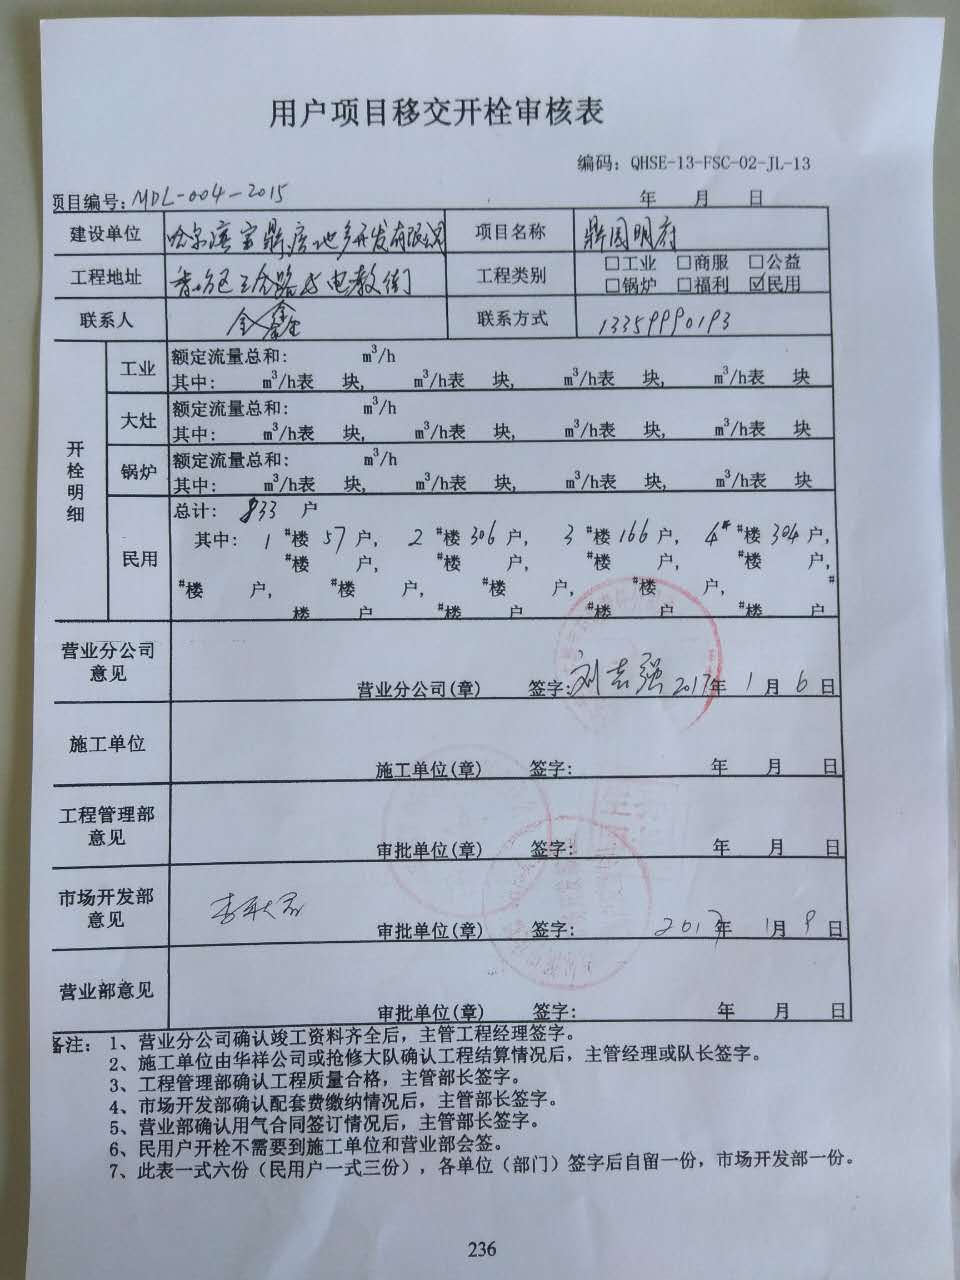 用户项目移交开栓审核表
编码：QHSE-13-FSC-02-JL-13
项目编号：MDL-004-2015 年 月 日
建设单位 哈尔滨宝鼎房地产开发有限公司 项目名称 鼎园明府
工程地址 香坊区三合路与电教街 工程类别 □工业 □商服 □公益
□锅炉 □福利 ☑民用
联系人 金鑫 联系方式 13359990193
开栓明细
工业 额定流量总和： m³/h
其中： m³/h表 块， m³/h表 块， m³/h表 块， m³/h表 块
大灶 额定流量总和： m³/h
其中： m³/h表 块， m³/h表 块， m³/h表 块， m³/h表 块
锅炉 额定流量总和： m³/h
其中： m³/h表 块， m³/h表 块， m³/h表 块， m³/h表 块
民用 总计： 833 户
其中： 1 #楼 57 户， 2 #楼 306 户， 3 #楼 166 户， 4# #楼 304 户，
#楼 户， #楼 户， #楼 户， #楼 户，
#楼 户， #楼 户， #楼 户， #楼 户， #
楼 户 #楼 户 #楼 户 #楼 户
营业分公司意见 营业分公司(章) 签字：刘志强 2017年 1 月 6 日
施工单位 施工单位(章) 签字： 年 月 日
工程管理部意见 审批单位(章) 签字： 年 月 日
市场开发部意见 审批单位(章) 签字： 2017年 1月 9 日
营业部意见 审批单位(章) 签字： 年 月 日
备注： 1、营业分公司确认竣工资料齐全后，主管工程经理签字。
2、施工单位由华祥公司或抢修大队确认工程结算情况后，主管经理或队长签字。
3、工程管理部确认工程质量合格，主管部长签字。
4、市场开发部确认配套费缴纳情况后，主管部长签字。
5、营业部确认用气合同签订情况后，主管部长签字。
6、民用户开栓不需要到施工单位和营业部会签。
7、此表一式六份（民用户一式三份），各单位（部门）签字后自留一份，市场开发部一份。
236